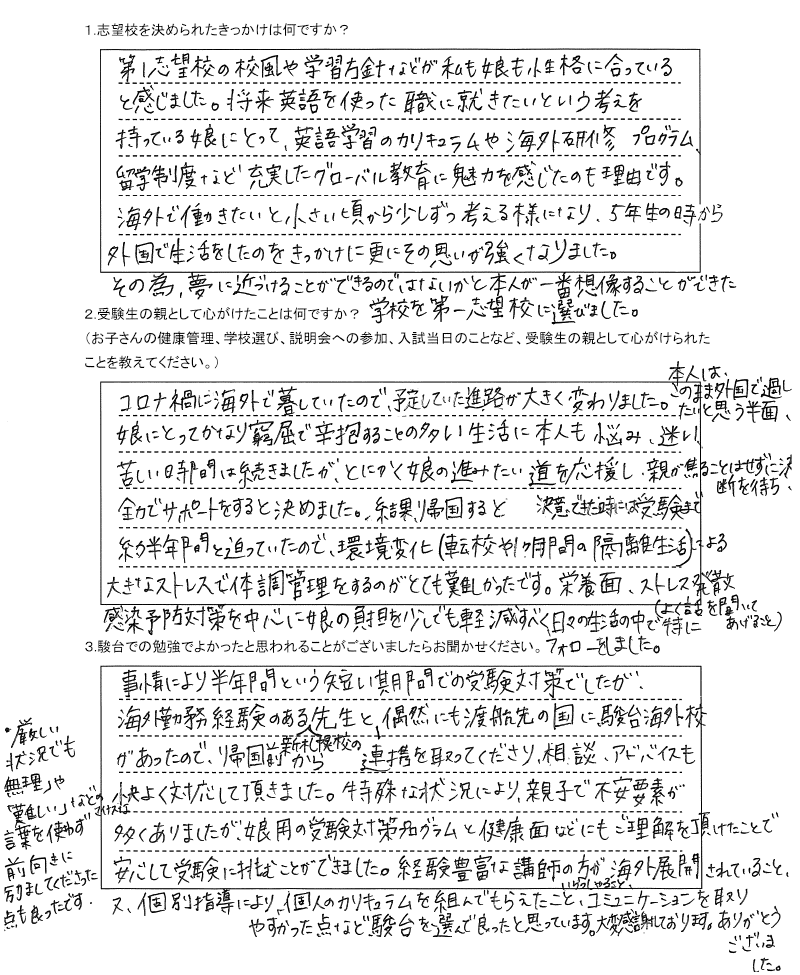 1.志望校を決められたきっかけは何ですか？
第1志望校の校風や学習方針などが私も娘も性格に合っている
と感じました。将来英語を使った職に就きたいという考えを
持っている娘にとって、英語学習のカリキュラムや海外研修プログラム、
留学制度など充実したグローバル教育に魅力を感じたのも理由です。
海外で働きたいと小さい頃から少しずつ考える様になり、5年生の時から
外国で生活をしたのをきっかけに更にその思いが強くなりました。
その為、夢に近づけることができるのではないかと本人が一番想像することができた
学校を第一志望校に選びました。
2.受験生の親として心がけたことは何ですか？
(お子さんの健康管理、学校選び、説明会への参加、入試当日のことなど、受験生の親として心がけられた
ことを教えてください。)
コロナ禍に海外で暮していたので、予定していた進路が大きく変わりました。
本人は、
このまま外国で過し
たいと思う半面、
娘にとってかなり窮屈で辛抱することの多い生活に本人も悩み、迷い、
苦しい時間は続きましたが、とにかく娘の進みたい道を応援し、親が焦ることはせずに決
断を待ち、
全力でサポートをすると決めました。結果、帰国すると決意できた時には受験まで
約半年間と迫っていたので、環境変化(転校や1ヶ月間の隔離生活)による
大きなストレスで体調管理をするのがとても難しかったです。栄養面、ストレス発散
感染予防対策を中心に娘の負担を少しでも軽減すべく日々の生活の中で特に
(よく話を聞いて
あげること)
フォローしました。
3.駿台での勉強でよかったと思われることがございましたらお聞かせください。
事情により半年間という短い期間での受験対策でしたが、
海外勤務経験のある先生と、偶然にも渡航先の国に駿台海外校
があったので、帰国前から新札幌校の連携を取ってくださり、相談、アドバイスも
快よく対応して頂きました。特殊な状況により、親子で不安要素が
多くありましたが、娘用の受験対策プログラムと健康面などにもご理解を頂けたことで
安心して受験に挑むことができました。経験豊富な講師の方が海外展開されていること、
いらっしゃること、
又、個別指導により、個人のカリキュラムを組んでもらえたこと、コミュニケーションを取り
やすかった点など駿台を選んで良かったと思っています。大変感謝しております。ありがとう
ございま
した。
・厳しい
状況でも
無理」や
「難しい」などの
マイナスな
言葉を使わず
前向きに
励ましてくださった
点も良ったです.